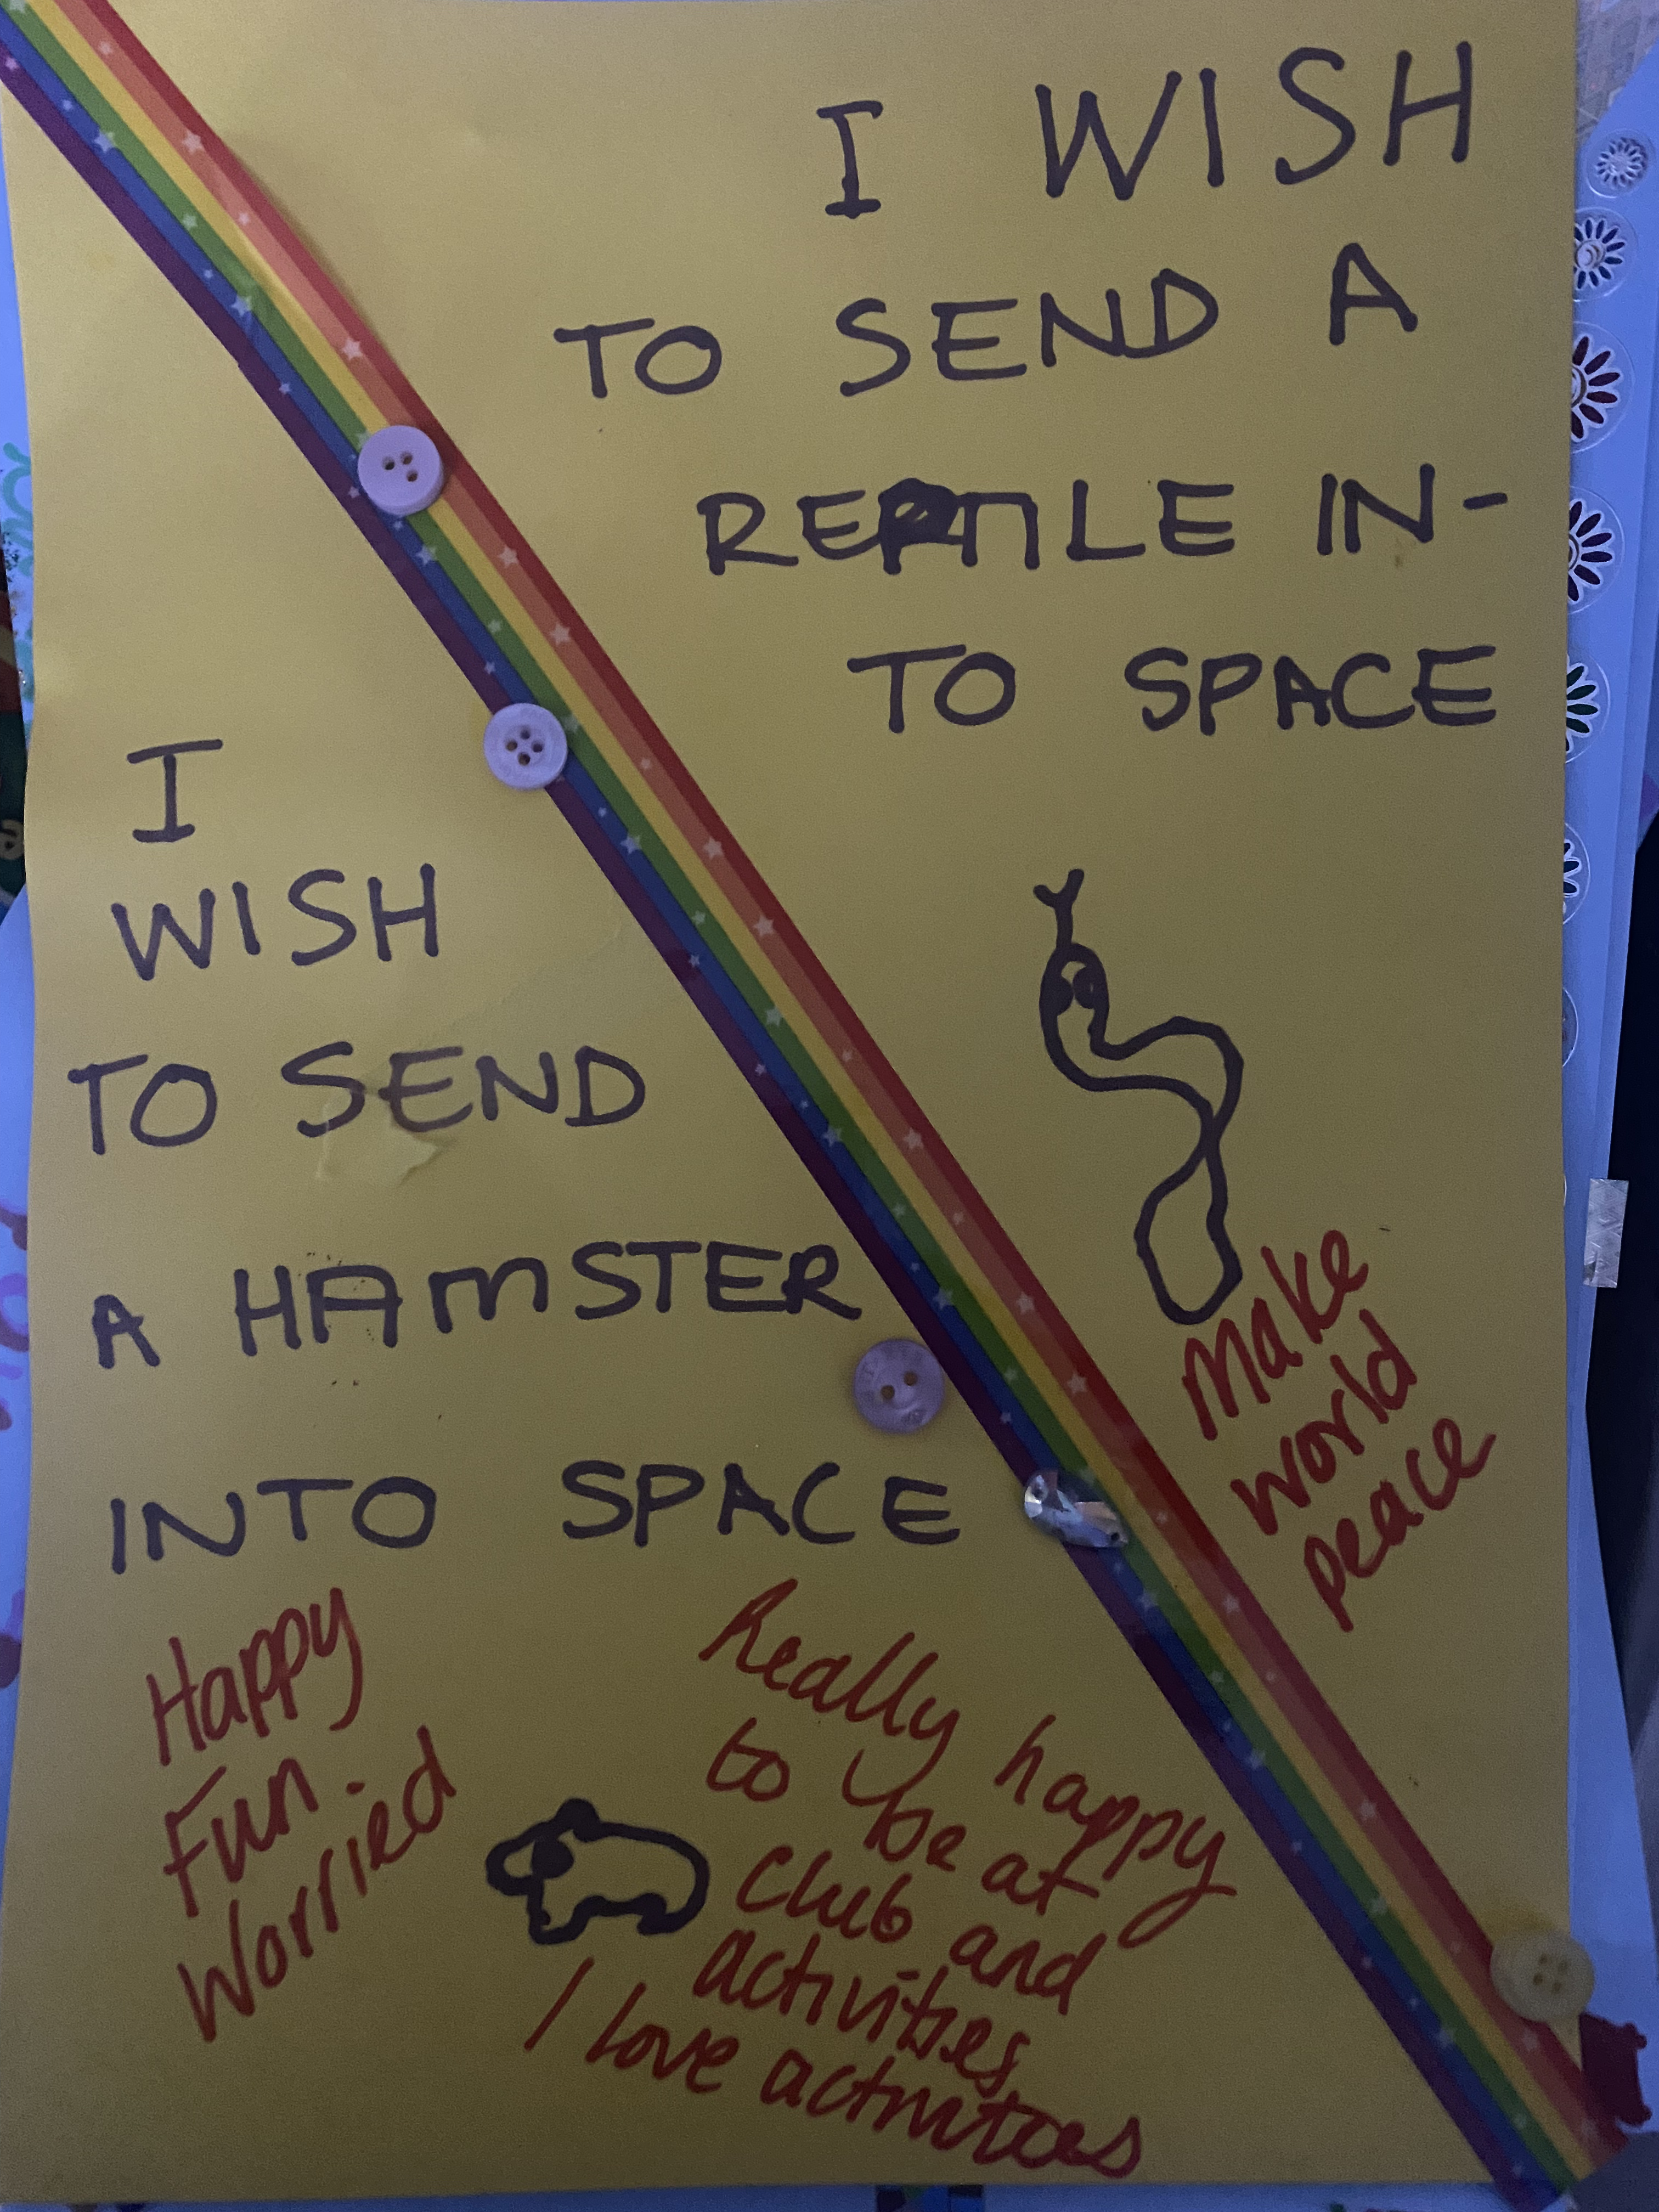 I WISH
TO SEND A
REPTILE IN-
TO SPACE
I
WISH
TO SEND
A HAMSTER
INTO SPACE
Make
world
peace
Happy
Fun
Worried
Really happy
to be at
club and
activities
I love activities